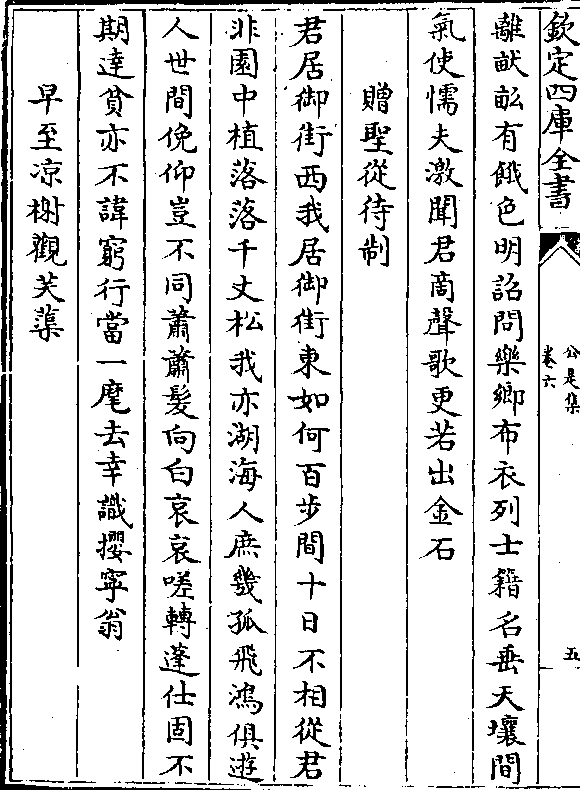 欽定四庫全書
公是集
卷六
五
離畎畝有餓色明詔問樂鄉布衣列士籍名垂天壤間
氣使懦夫激聞君商聲歌更若出金石
贈聖從待制
君居御街西我居御街東如何百步間十日不相從君
非園中植落落千丈松我亦湖海人庶幾孤飛鴻俱遊
人世間俛仰豈不同蕭蕭髮向白哀哀嗟轉蓬仕固不
期達貧亦不諱窮行當一麾去幸識攖寧翁
早至凉榭觀芙蕖